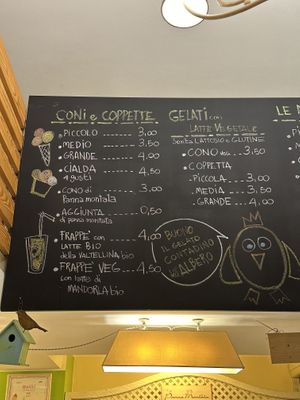 CONI e COPPETTE
PICCOLO ------- 3,00
MEDIO -------- 3,50
GRANDE ------ 4,00
CIALDA ------ 4,50
4 gusti
CONO di ------ 3,00
Panna montata
AGGIUNTA ---- 0,50
di panna montata
FRAPPÈ con ---- 4,00
LATTE BIO
della VALTELLINA bio
FRAPPÈ VEG ---- 4,50
con latte di
MANDORLA bio
GELATI con
LATTE VEGETALE
Senza LATTOSIO e GLUTINE
CONO ---- 3,50
COPPETTA
PICCOLA --- 3,00
MEDIA ---- 3,50
GRANDE --- 4,00
BUONO
IL GELATO
CONTADINO
ALBERO
LE
Panna Montata